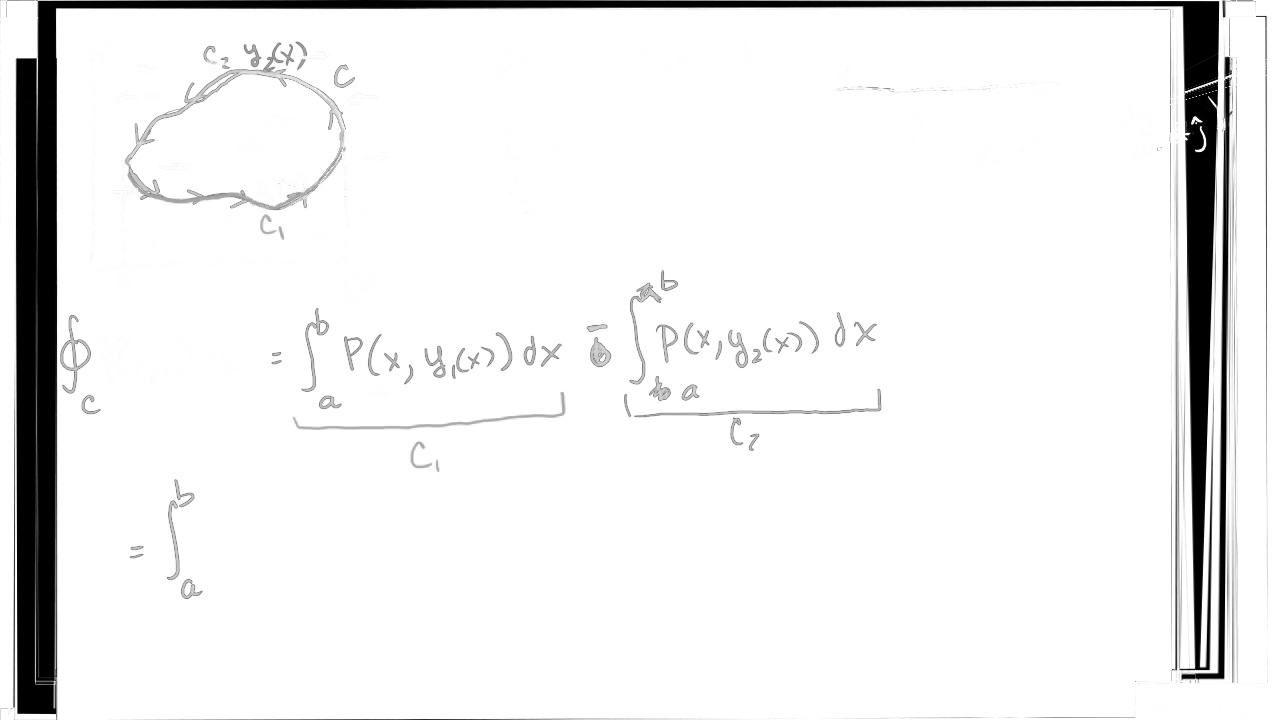 C₂ y₂(x) C
ĵ
C₁
∮_C = ∫_a^b P(x, y₁(x)) dx - ∫_a^b P(x, y₂(x)) dx
C₁ C₂
= ∫_a^b